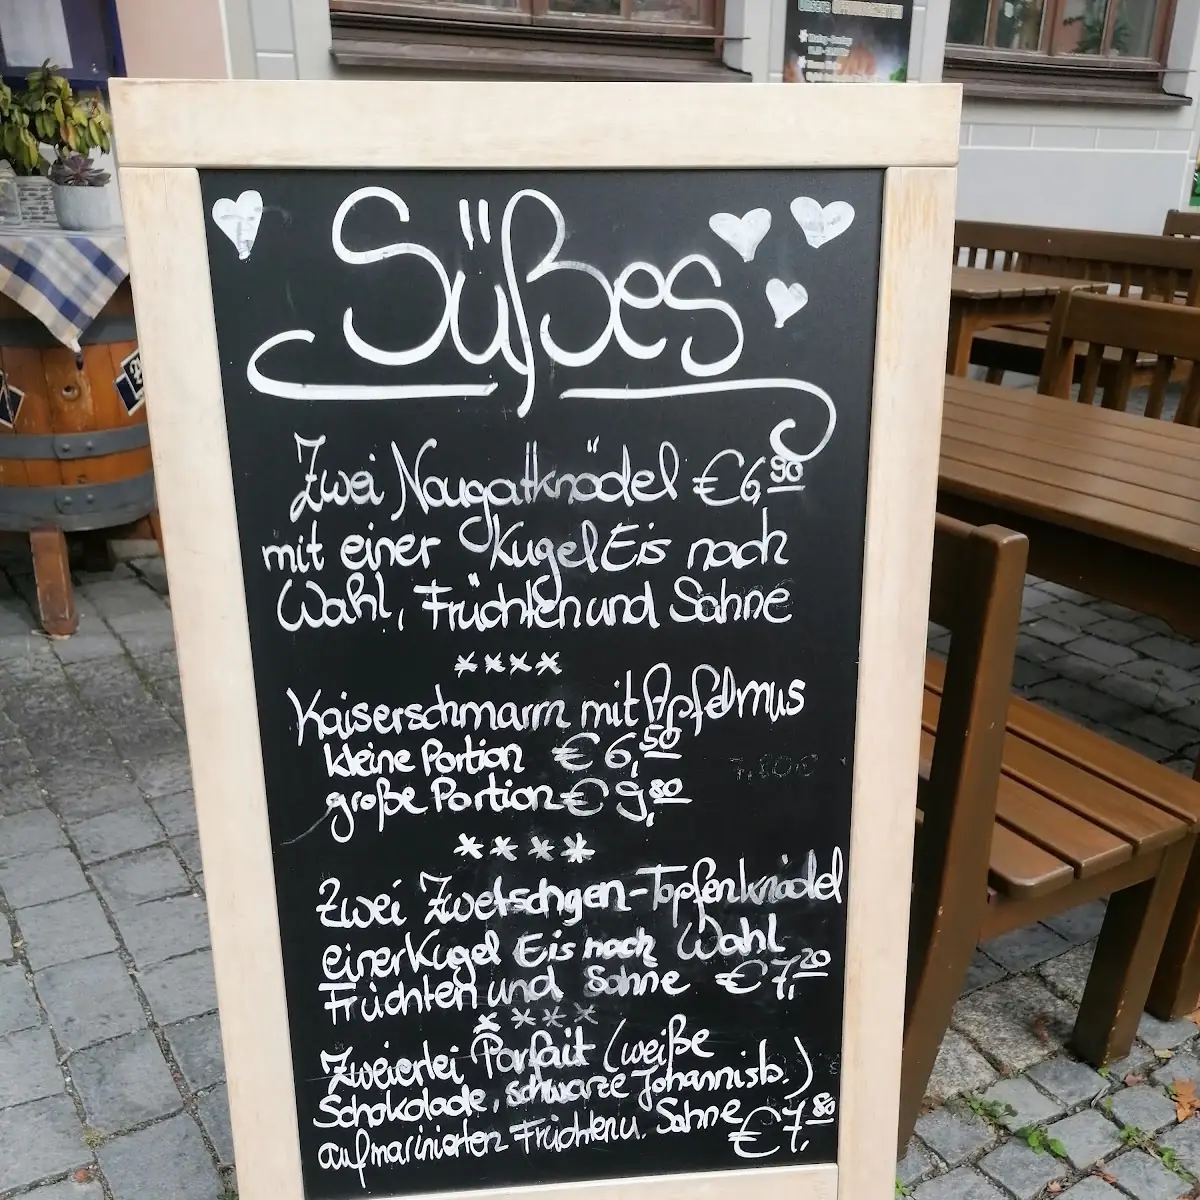 Unsere
Süßes
Zwei Nougatknödel €6,90
mit einer Kugel Eis nach
Wahl, Früchten und Sahne
****
Kaiserschmarrn mit Apfelmus
kleine Portion €6,50
große Portion €9,80
****
Zwei Zwetschgen-Topfenknödel
einer Kugel Eis nach Wahl
Früchten und Sahne €7,20
****
Zweierlei Parfait (weiße
Schokolade, schwarze Johannisb.)
auf marinierten Früchten u. Sahne €7,80